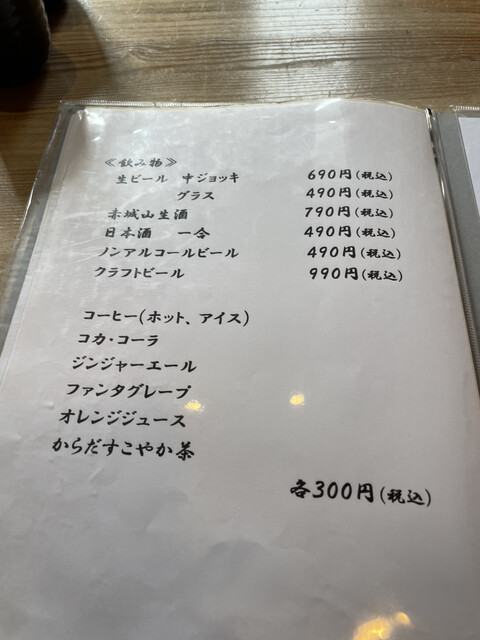 ≪飲み物≫
生ビール 中ジョッキ 690円(税込)
グラス 490円(税込)
赤城山生酒 790円(税込)
日本酒 一合 490円(税込)
ノンアルコールビール 490円(税込)
クラフトビール 990円(税込)
コーヒー(ホット、アイス)
コカ・コーラ
ジンジャーエール
ファンタグレープ
オレンジジュース
からだすこやか茶
各300円(税込)